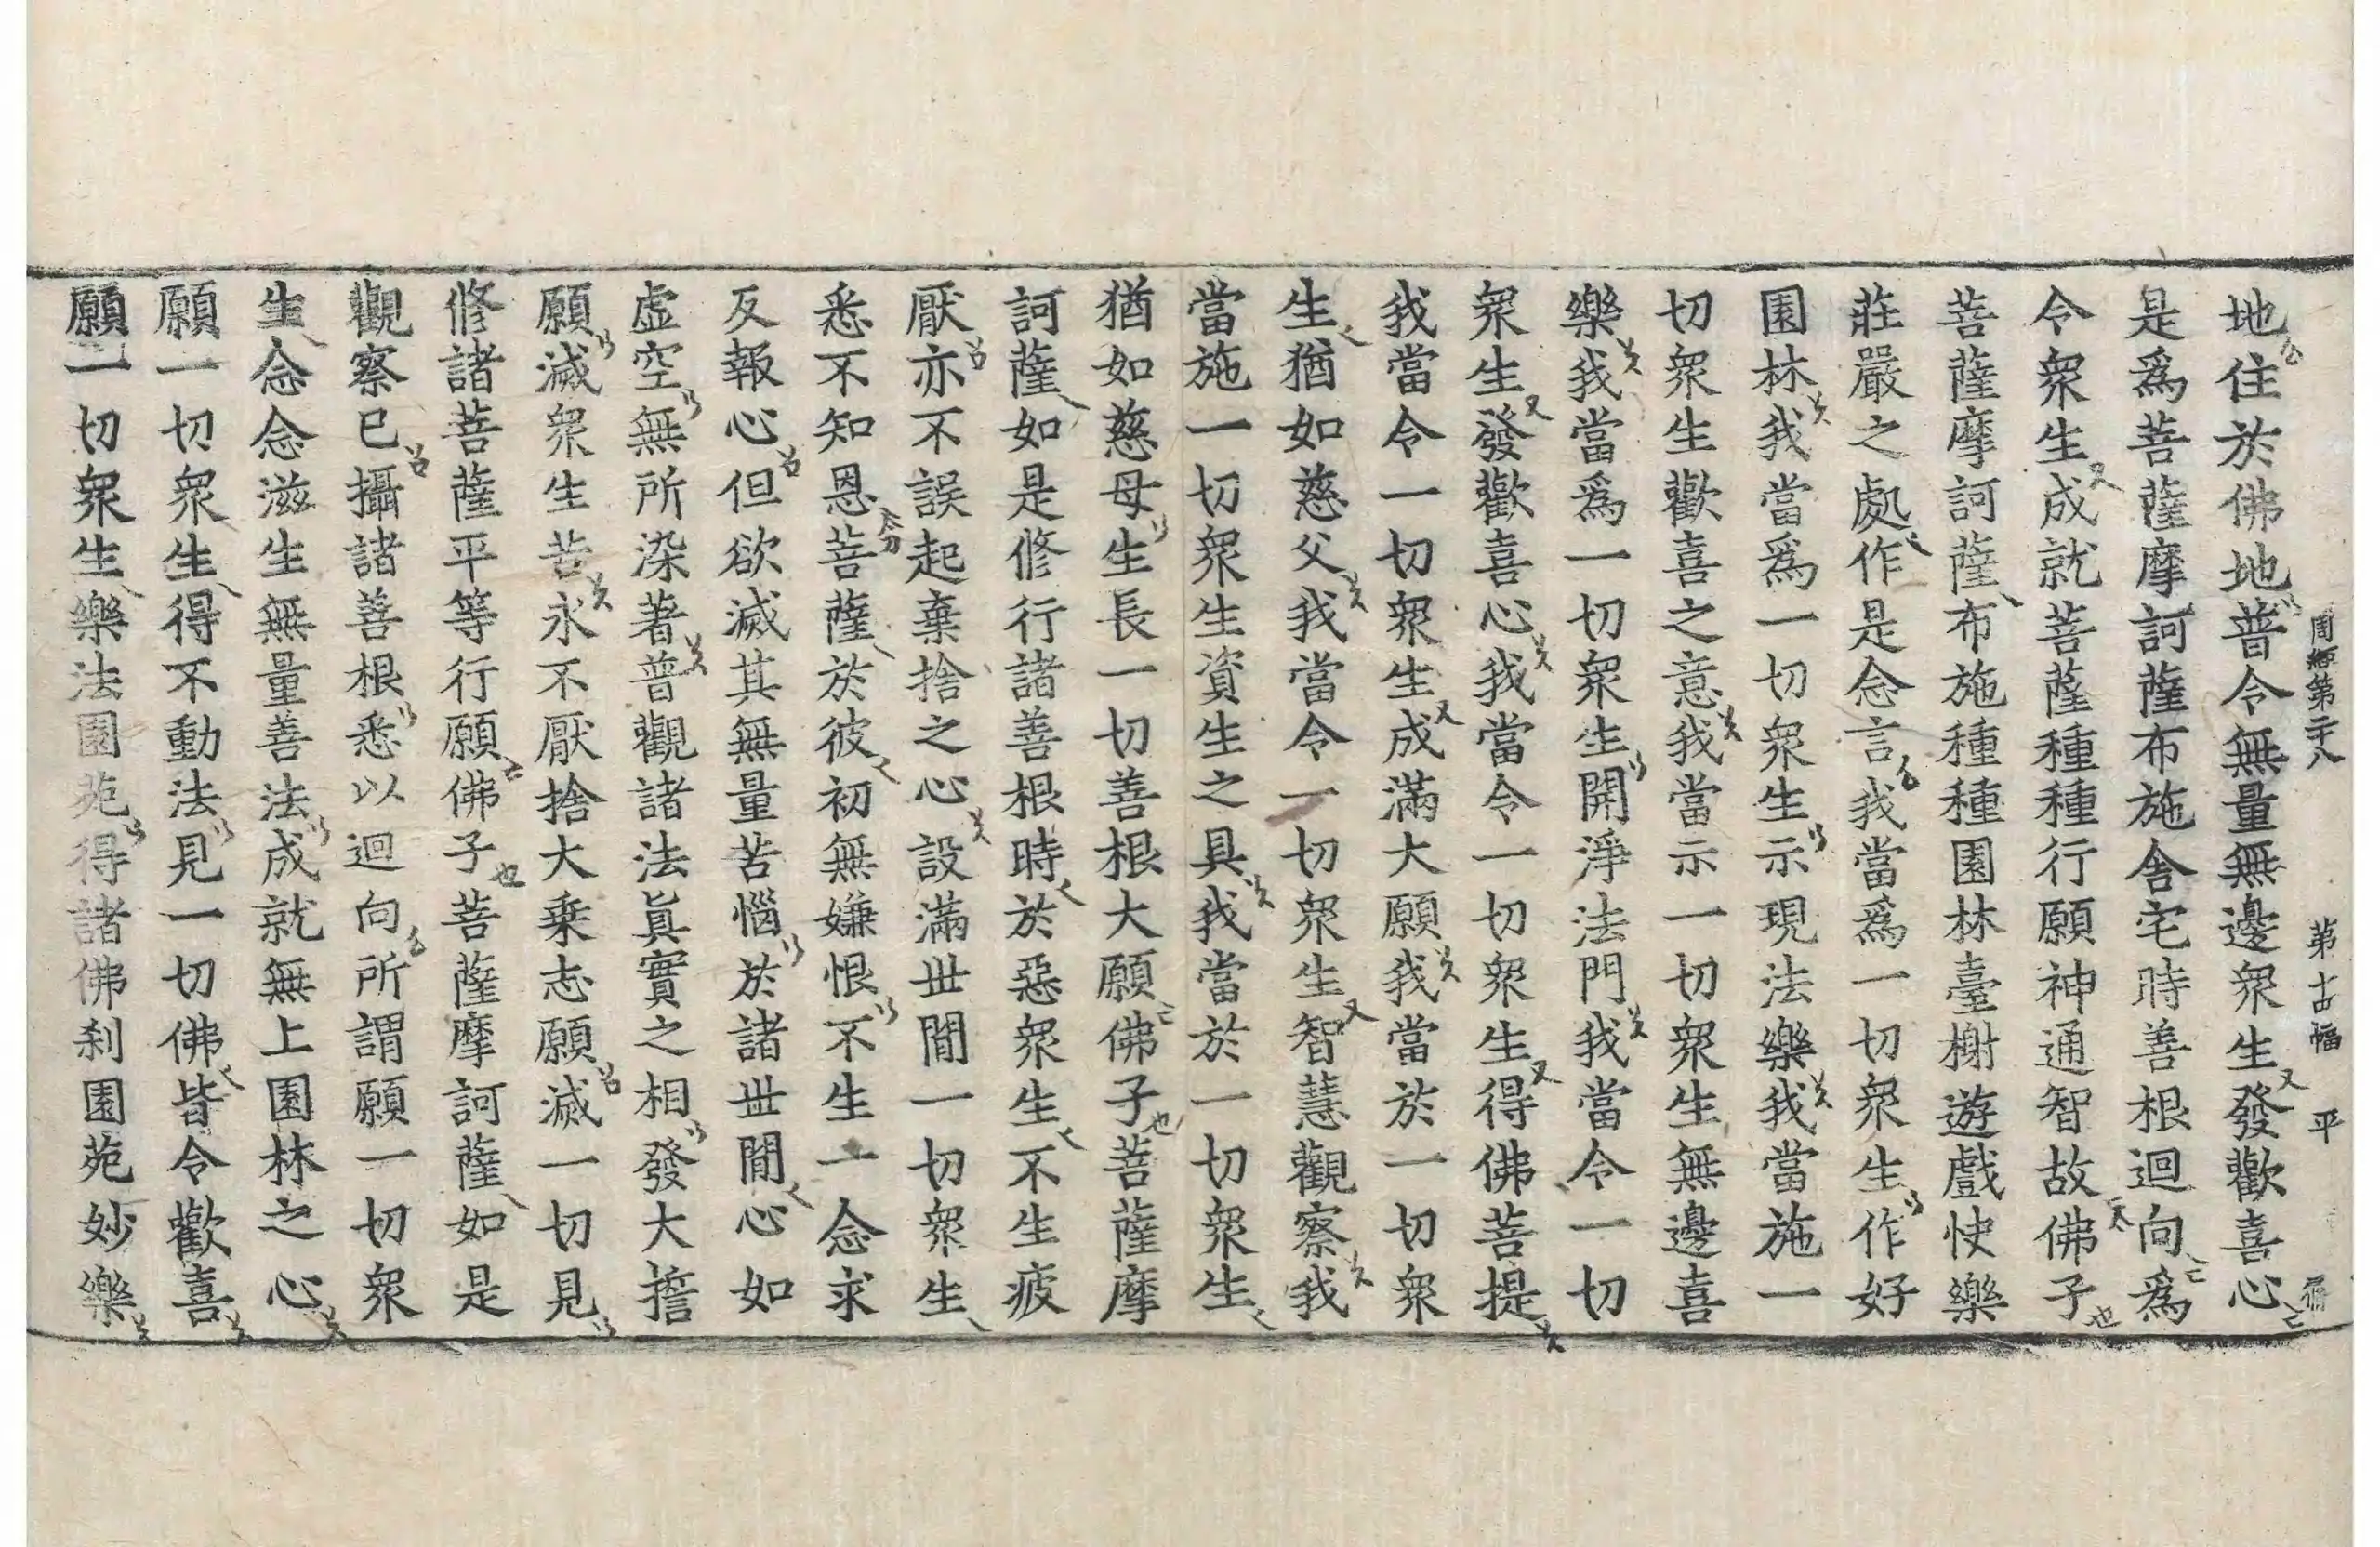 周經第二十八 第十四幅 平
地住於佛地普令無量無邊衆生發歡喜心
是爲菩薩摩訶薩布施舍宅時善根迴向爲
令衆生成就菩薩種種行願神通智故佛子
菩薩摩訶薩布施種種園林臺榭遊戲快樂
莊嚴之處作是念言我當爲一切衆生作好
園林我當爲一切衆生示現法樂我當施一
切衆生歡喜之意我當示一切衆生無邊喜
樂我當爲一切衆生開淨法門我當令一切
衆生發歡喜心我當令一切衆生得佛菩提
我當令一切衆生成滿大願我當於一切衆
生猶如慈父我當令一切衆生智慧觀察我
當施一切衆生資生之具我當於一切衆生
猶如慈母生長一切善根大願佛子菩薩摩
訶薩如是修行諸善根時於惡衆生不生疲
厭亦不誤起棄捨之心設滿世間一切衆生
悉不知恩菩薩於彼初無嫌恨不生一念求
反報心但欲滅其無量苦惱於諸世間心如
虛空無所染著普觀諸法眞實之相發大擔
願滅衆生苦永不厭捨大乘志願滅一切見
修諸菩薩平等行願佛子菩薩摩訶薩如是
觀察已攝諸善根悉以迴向所謂願一切衆
生念念滋生無量善法成就無上園林之心
願一切衆生得不動法見一切佛皆令歡喜
願一切衆生樂法園苑得諸佛刹園苑妙樂